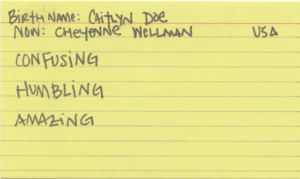 BIRTH NAME: CAITLYN DOE
NOW: CHEYENNE WELLMAN USA
CONFUSING
HUMBLING
AMAZING